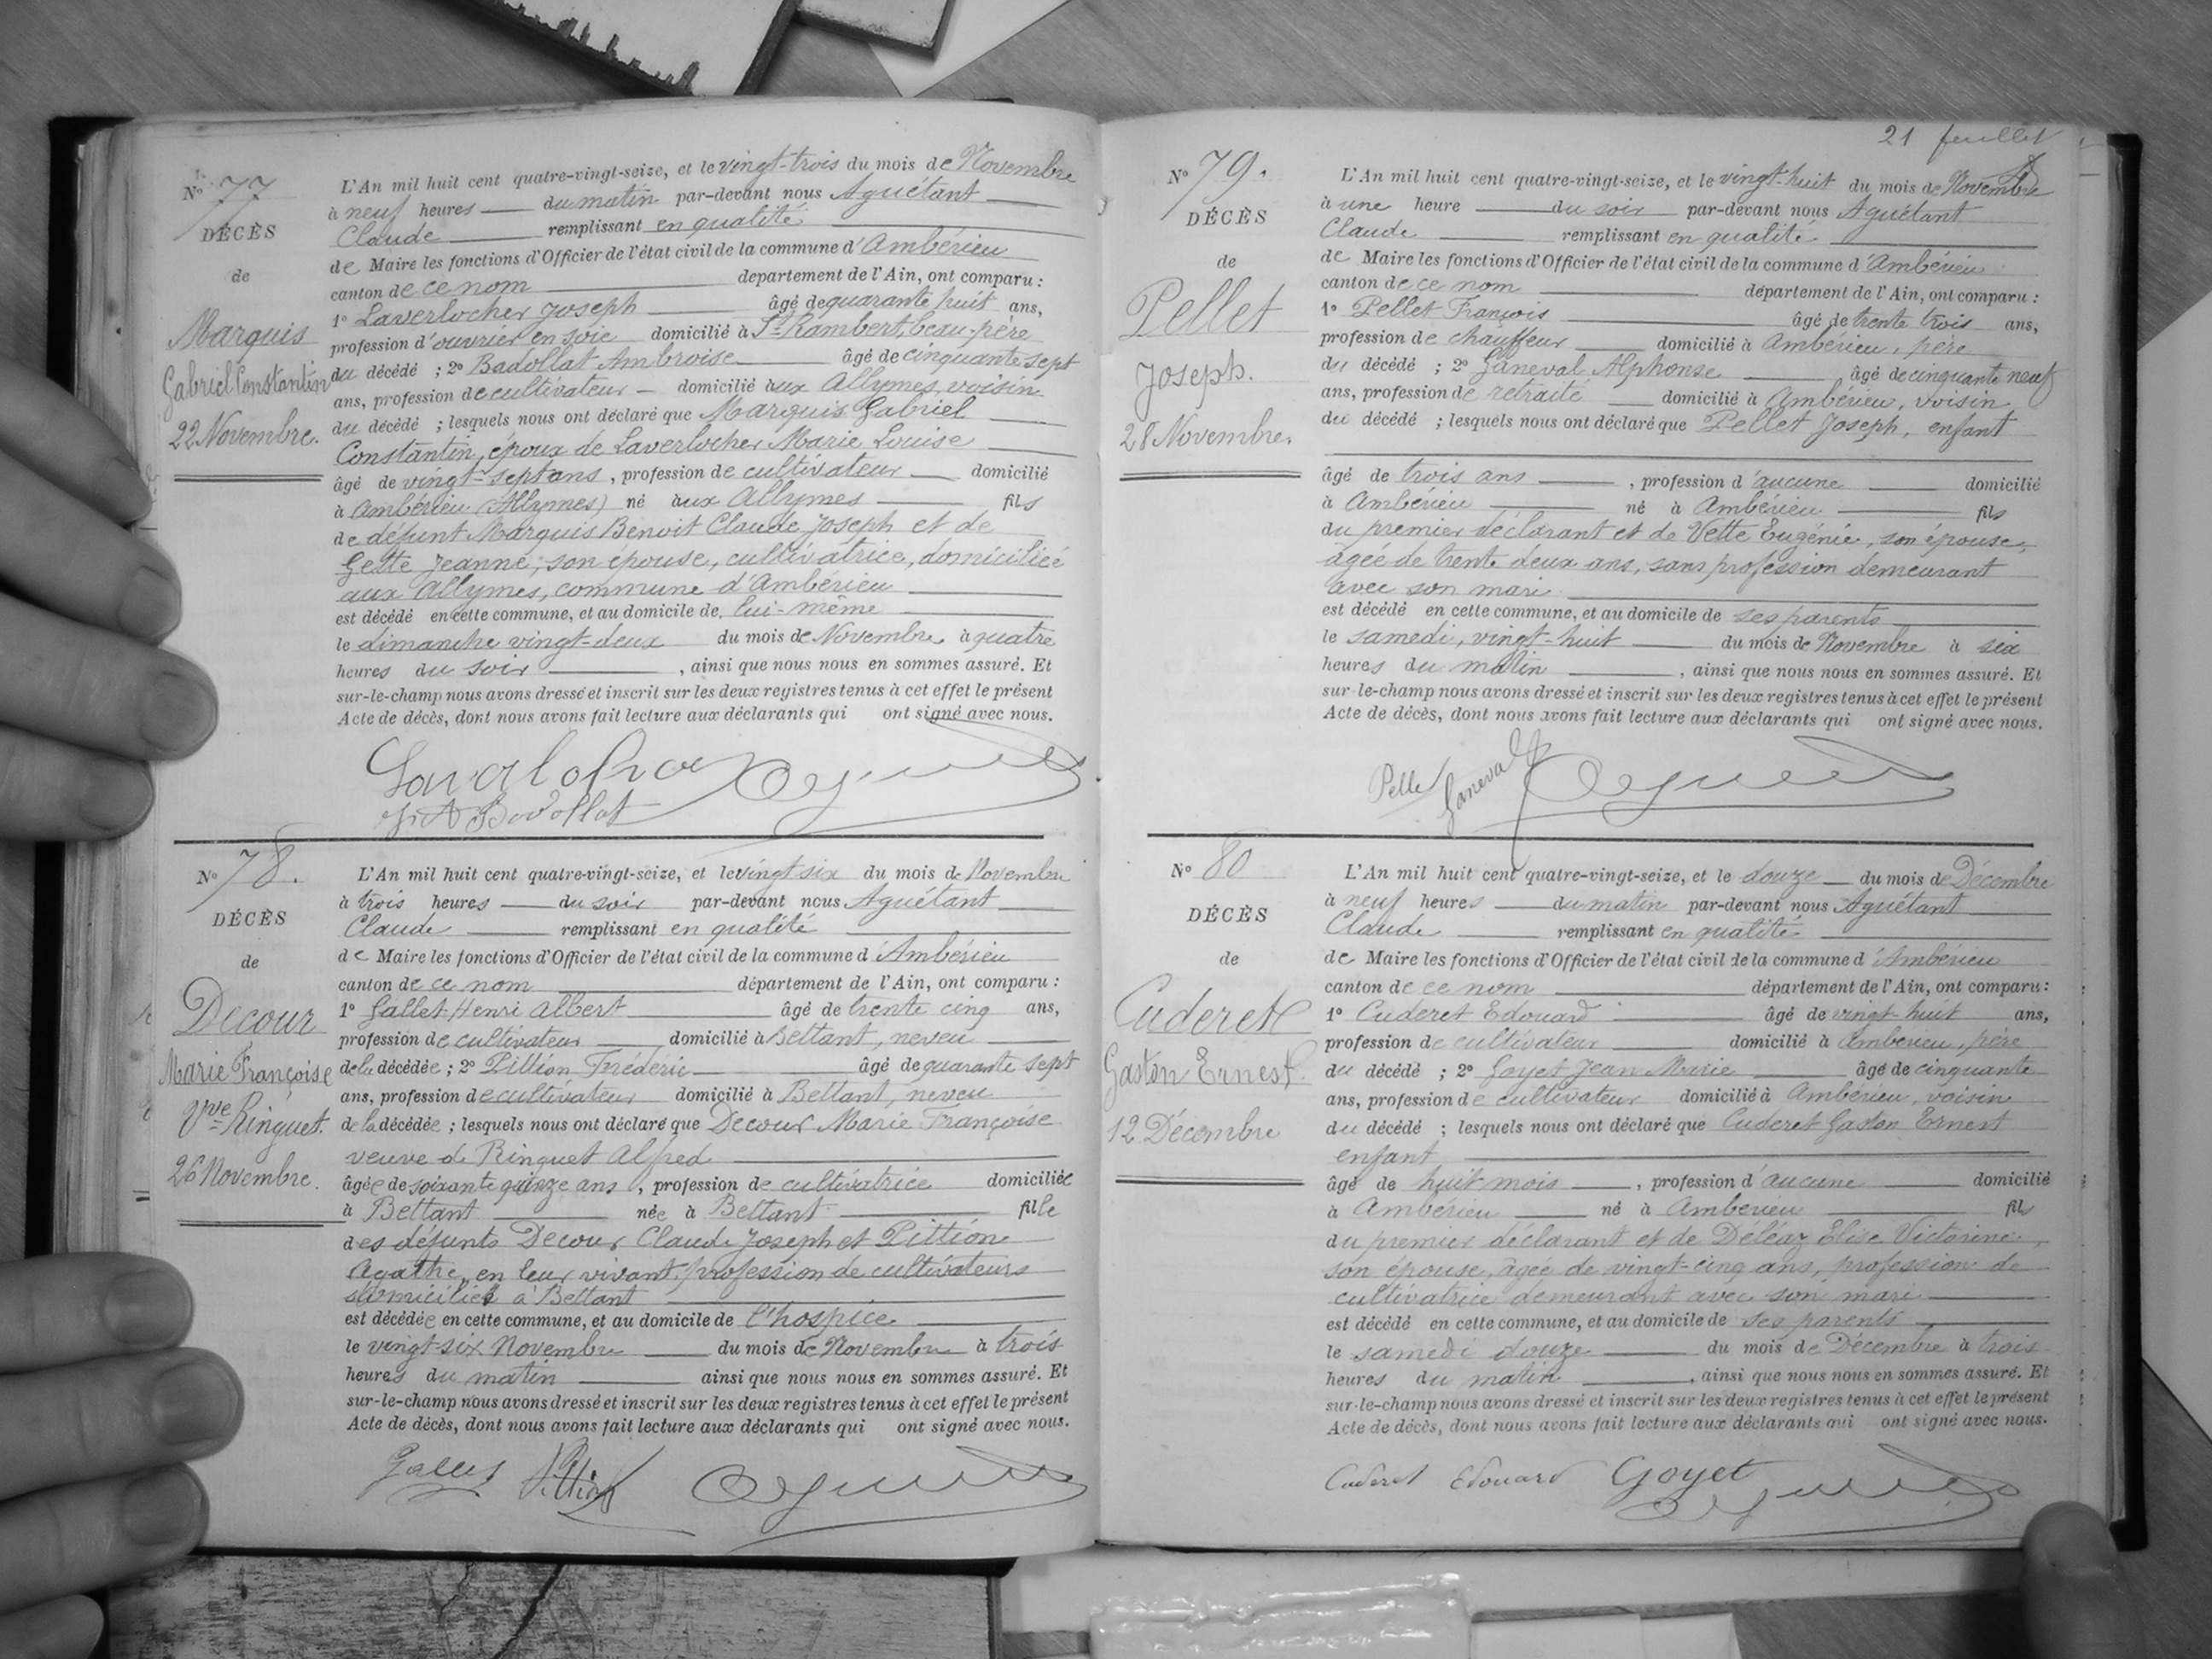 N° 77
DÉCÈS
de
Marquis
Gabriel Constantin
22 Novembre.
L'An mil huit cent quatre-vingt-seize, et le vingt-trois du mois de Novembre
à neuf heures du matin par-devant nous Aguétant
Claude remplissant en qualité
de Maire les fonctions d'Officier de l'état civil de la commune d'Ambérieu
canton de ce nom département de l'Ain, ont comparu :
1° Laverlocher Joseph âgé de quarante huit ans,
profession d'ouvrier en soie domicilié à St Rambert, beau-père
du décédé ; 2° Badollat Ambroise âgé de cinquante sept
ans, profession de cultivateur domicilié aux Allymes, voisin
du décédé ; lesquels nous ont déclaré que Marquis Gabriel
Constantin, époux de Laverlocher Marie Louise
âgé de vingt-sept ans, profession de cultivateur domicilié
à Ambérieu (Allymes) né aux Allymes fils
de défunt Marquis Benoit Claude Joseph et de
Gette Jeanne, son épouse, cultivatrice, domiciliée
aux Allymes, commune d'Ambérieu
est décédé en cette commune, et au domicile de lui-même
le dimanche vingt-deux du mois de Novembre à quatre
heures du soir, ainsi que nous nous en sommes assuré. Et
sur-le-champ nous avons dressé et inscrit sur les deux registres tenus à cet effet le présent
Acte de décès, dont nous avons fait lecture aux déclarants qui ont signé avec nous.
Badollat
N° 78.
DÉCÈS
de
Decour
Marie Françoise
Vve Ringuet.
26 Novembre.
L'An mil huit cent quatre-vingt-seize, et le vingt six du mois de Novembre
à trois heures du soir par-devant nous Aguétant
Claude remplissant en qualité
de Maire les fonctions d'Officier de l'état civil de la commune d'Ambérieu
canton de ce nom département de l'Ain, ont comparu :
1° Gallet Henri Albert âgé de trente cinq ans,
profession de cultivateur domicilié à Bettant, neveu
de la décédée ; 2° Pittion Frédéric âgé de quarante sept
ans, profession de cultivateur domicilié à Bettant, neveu
de la décédée ; lesquels nous ont déclaré que Decour Marie Françoise
veuve de Ringuet Alfred
âgée de soixante quinze ans, profession de cultivatrice domiciliée
à Bettant née à Bettant fille
des défunts Decour Claude Joseph et Pittion
Agathe, en leur vivant, profession de cultivateurs
domiciliés à Bettant
est décédée en cette commune, et au domicile de l'hospice
le vingt-six Novembre du mois de Novembre à trois
heures du matin ainsi que nous nous en sommes assuré. Et
sur-le-champ nous avons dressé et inscrit sur les deux registres tenus à cet effet le présent
Acte de décès, dont nous avons fait lecture aux déclarants qui ont signé avec nous.
Pittion
21 feuillet
N° 79.
DÉCÈS
de
Pellet
Joseph.
28 Novembre.
L'An mil huit cent quatre-vingt-seize, et le vingt-huit du mois de Novembre
à une heure du soir par-devant nous Aguétant
Claude remplissant en qualité
de Maire les fonctions d'Officier de l'état civil de la commune d'Ambérieu
canton de ce nom département de l'Ain, ont comparu :
1° Pellet François âgé de trente trois ans,
profession de chauffeur domicilié à Ambérieu, père
du décédé ; 2° Ganeval Alphonse âgé de cinquante neuf
ans, profession de retraité domicilié à Ambérieu, voisin
du décédé ; lesquels nous ont déclaré que Pellet Joseph, enfant
âgé de trois ans, profession d'aucune domicilié
à Ambérieu né à Ambérieu fils
du premier déclarant et de Vette Eugénie, son épouse,
agée de trente deux ans, sans profession demeurant
avec son mari
est décédé en cette commune, et au domicile de ses parents
le samedi, vingt-huit du mois de Novembre à six
heures du matin, ainsi que nous nous en sommes assuré. Et
sur-le-champ nous avons dressé et inscrit sur les deux registres tenus à cet effet le présent
Acte de décès, dont nous avons fait lecture aux déclarants qui ont signé avec nous.
Pellet Ganeval
N° 80
DÉCÈS
de
Cuderet
Gaston Ernest.
12 Décembre
L'An mil huit cent quatre-vingt-seize, et le douze du mois de Décembre
à neuf heures du matin par-devant nous Aguétant
Claude remplissant en qualité
de Maire les fonctions d'Officier de l'état civil de la commune d'Ambérieu
canton de ce nom département de l'Ain, ont comparu :
1° Cuderet Edouard âgé de vingt-huit ans,
profession de cultivateur domicilié à Ambérieu, père
du décédé ; 2° Goyet Jean Marie âgé de cinquante
ans, profession de cultivateur domicilié à Ambérieu, voisin
du décédé ; lesquels nous ont déclaré que Cuderet Gaston Ernest
enfant
âgé de huit mois, profession d'aucune domicilié
à Ambérieu né à Ambérieu fils
du premier déclarant et de Déléaz Elise Victorine,
son épouse, agée de vingt-cinq ans, profession de
cultivatrice demeurant avec son mari
est décédé en cette commune, et au domicile de ses parents
le samedi douze du mois de Décembre à trois
heures du matin, ainsi que nous nous en sommes assuré. Et
sur-le-champ nous avons dressé et inscrit sur les deux registres tenus à cet effet le présent
Acte de décès, dont nous avons fait lecture aux déclarants qui ont signé avec nous.
Cuderet Edouard Goyet